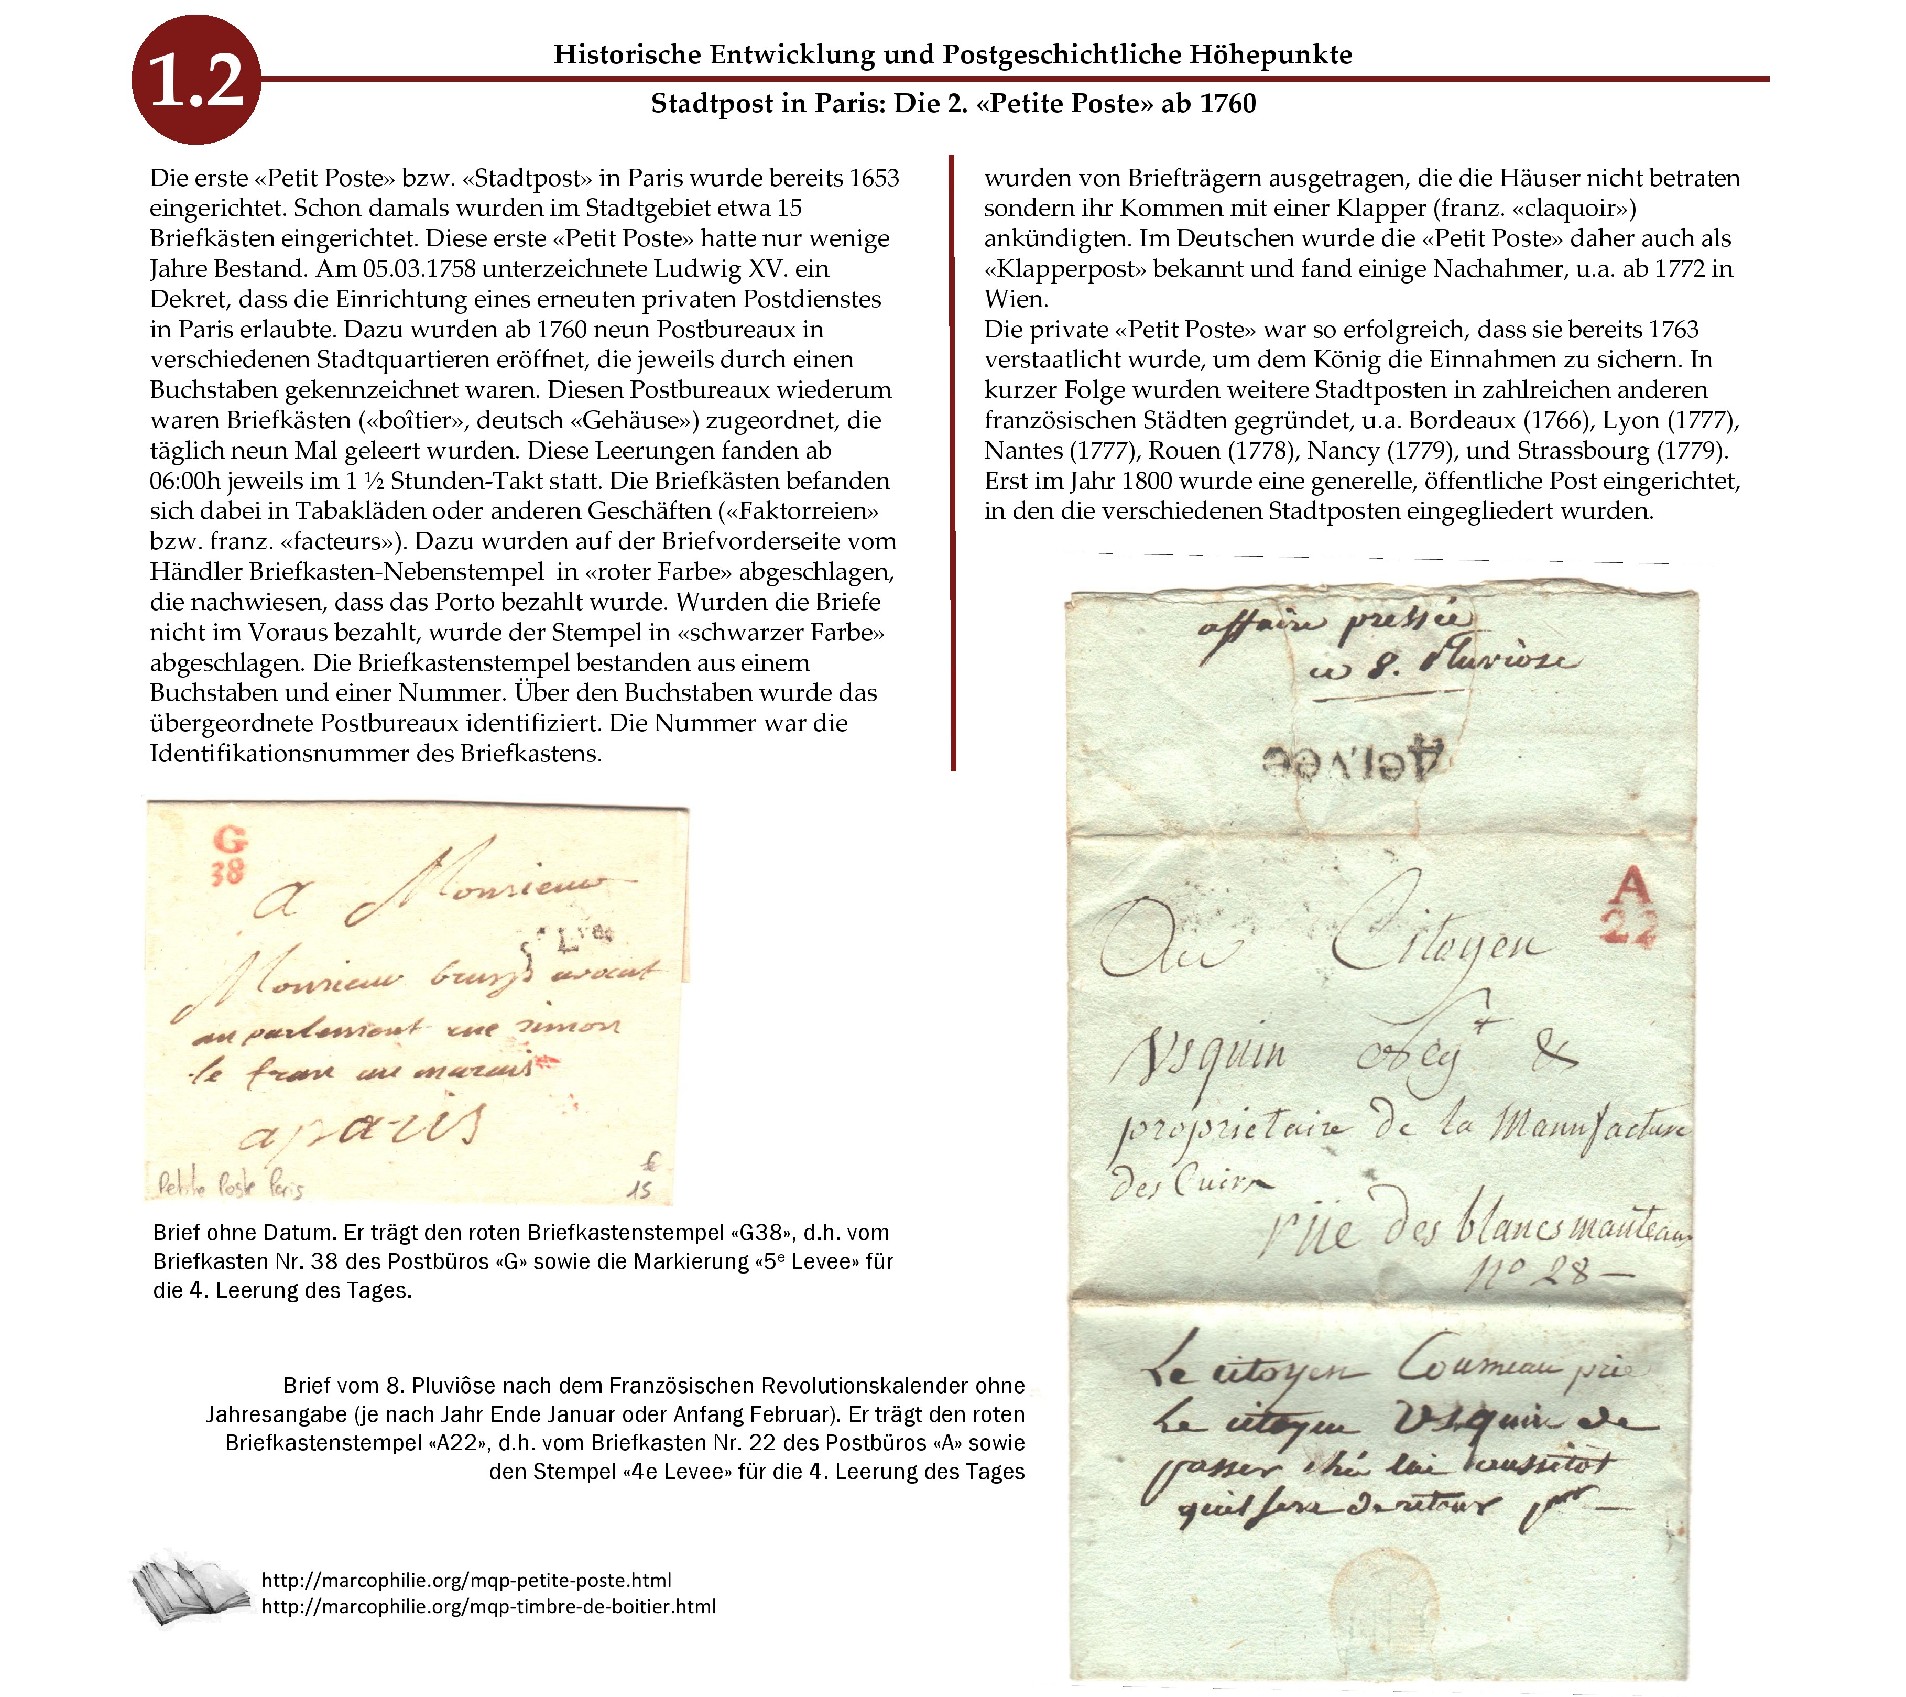 1.2
Historische Entwicklung und Postgeschichtliche Höhepunkte
Stadtpost in Paris: Die 2. «Petite Poste» ab 1760
Die erste «Petit Poste» bzw. «Stadtpost» in Paris wurde bereits 1653
eingerichtet. Schon damals wurden im Stadtgebiet etwa 15
Briefkästen eingerichtet. Diese erste «Petit Poste» hatte nur wenige
Jahre Bestand. Am 05.03.1758 unterzeichnete Ludwig XV. ein
Dekret, dass die Einrichtung eines erneuten privaten Postdienstes
in Paris erlaubte. Dazu wurden ab 1760 neun Postbureaux in
verschiedenen Stadtquartieren eröffnet, die jeweils durch einen
Buchstaben gekennzeichnet waren. Diesen Postbureaux wiederum
waren Briefkästen («boîtier», deutsch «Gehäuse») zugeordnet, die
täglich neun Mal geleert wurden. Diese Leerungen fanden ab
06:00h jeweils im 1 ½ Stunden-Takt statt. Die Briefkästen befanden
sich dabei in Tabakläden oder anderen Geschäften («Faktorreien»
bzw. franz. «facteurs»). Dazu wurden auf der Briefvorderseite vom
Händler Briefkasten-Nebenstempel in «roter Farbe» abgeschlagen,
die nachwiesen, dass das Porto bezahlt wurde. Wurden die Briefe
nicht im Voraus bezahlt, wurde der Stempel in «schwarzer Farbe»
abgeschlagen. Die Briefkastenstempel bestanden aus einem
Buchstaben und einer Nummer. Über den Buchstaben wurde das
übergeordnete Postbureaux identifiziert. Die Nummer war die
Identifikationsnummer des Briefkastens.
wurden von Briefträgern ausgetragen, die die Häuser nicht betraten
sondern ihr Kommen mit einer Klapper (franz. «claquoir»)
ankündigten. Im Deutschen wurde die «Petit Poste» daher auch als
«Klapperpost» bekannt und fand einige Nachahmer, u.a. ab 1772 in
Wien.
Die private «Petit Poste» war so erfolgreich, dass sie bereits 1763
verstaatlicht wurde, um dem König die Einnahmen zu sichern. In
kurzer Folge wurden weitere Stadtposten in zahlreichen anderen
französischen Städten gegründet, u.a. Bordeaux (1766), Lyon (1777),
Nantes (1777), Rouen (1778), Nancy (1779), und Strassbourg (1779).
Erst im Jahr 1800 wurde eine generelle, öffentliche Post eingerichtet,
in den die verschiedenen Stadtposten eingegliedert wurden.
G
38
a Monsieur
Monsieur avocat
au parlement rue simon
le franc au marais
a paris
Petite Poste Paris
15
Brief ohne Datum. Er trägt den roten Briefkastenstempel «G38», d.h. vom
Briefkasten Nr. 38 des Postbüros «G» sowie die Markierung «5e Levee» für
die 4. Leerung des Tages.
Brief vom 8. Pluviôse nach dem Französischen Revolutionskalender ohne
Jahresangabe (je nach Jahr Ende Januar oder Anfang Februar). Er trägt den roten
Briefkastenstempel «A22», d.h. vom Briefkasten Nr. 22 des Postbüros «A» sowie
den Stempel «4e Levee» für die 4. Leerung des Tages
http://marcophilie.org/mqp-petite-poste.html
http://marcophilie.org/mqp-timbre-de-boitier.html
affaire pressée
ce 8. Pluviôse
4elvee
A
22
Au Citoyen
Usquin &
proprietaire de la Manufacture
des Cuirs
rüe des blancs manteaux
no 28
Le citoyen Coumeau prie
Le citoyen Usquin de
passer ché lui aussitôt
de retour